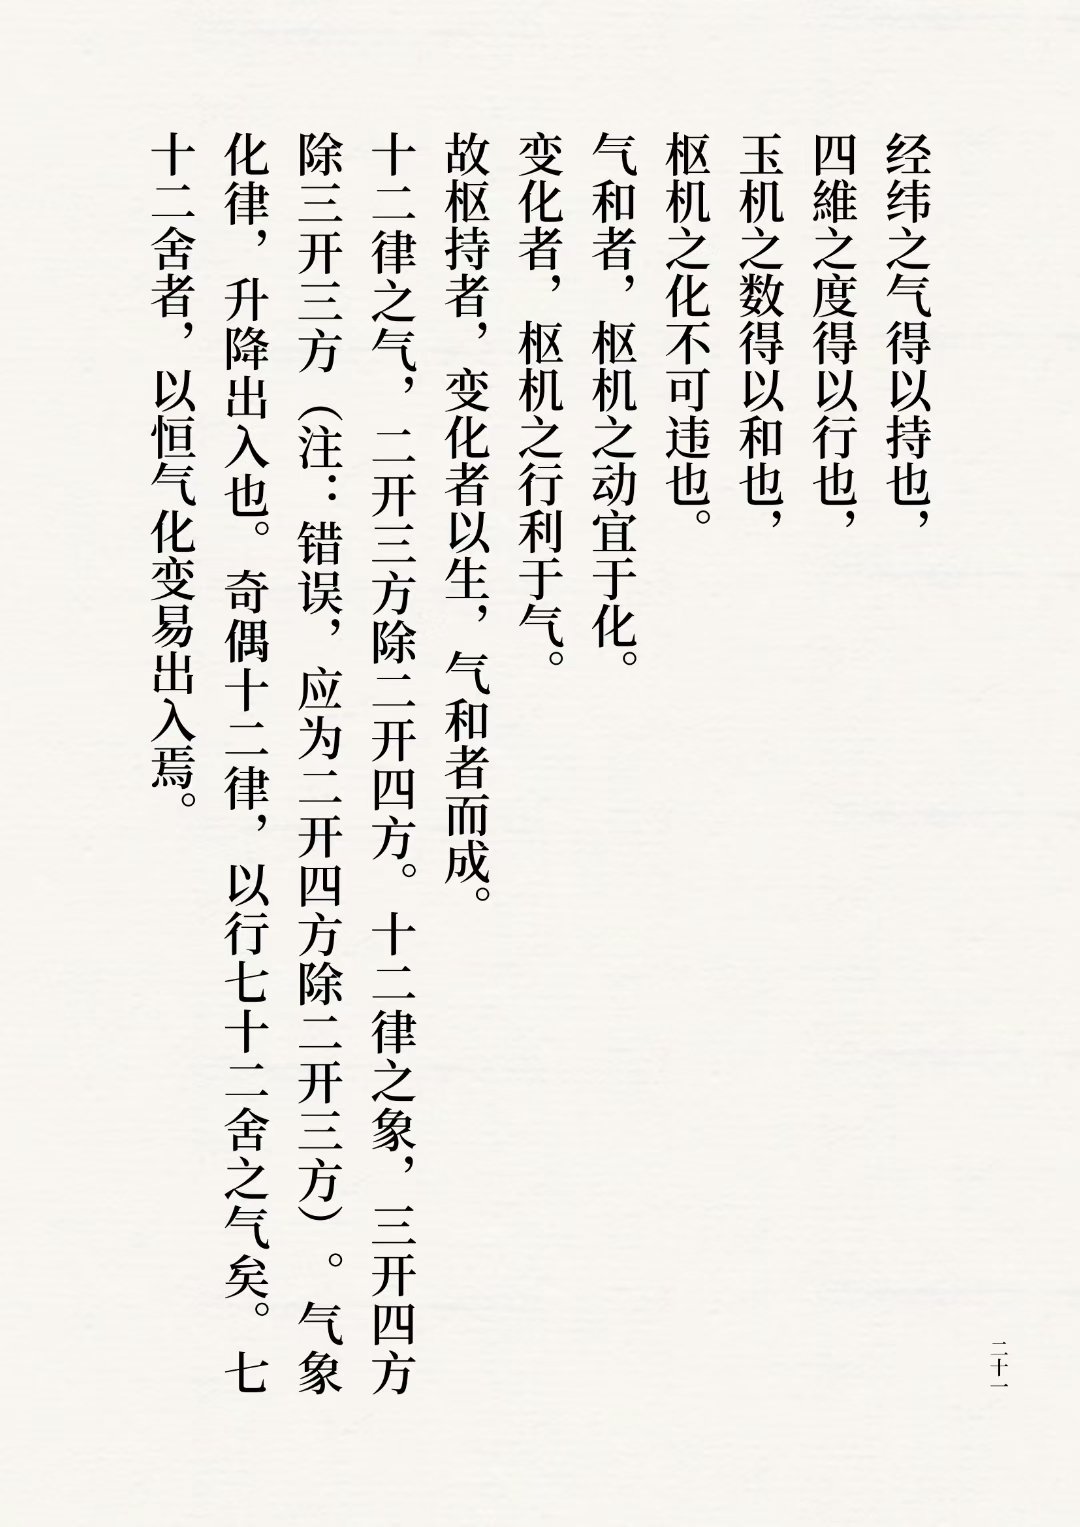 经纬之气得以持也，
四維之度得以行也，
玉机之数得以和也，
枢机之化不可违也。
气和者，枢机之动宜于化。
变化者，枢机之行利于气。
故枢持者，变化者以生，气和者而成。
十二律之气，二开三方除二开四方。十二律之象，三开四方
除三开三方（注：错误，应为二开四方除二开三方）。气象
化律，升降出入也。奇偶十二律，以行七十二舍之气矣。七
十二舍者，以恒气化变易出入焉。
二十一